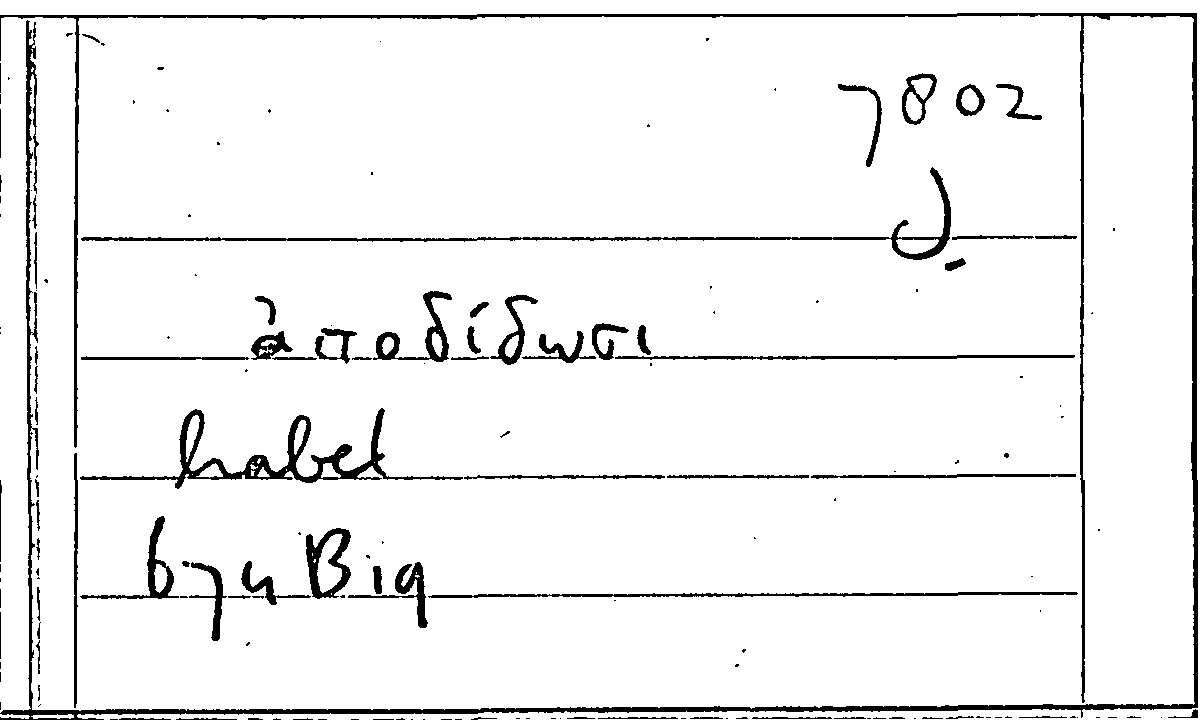 7802
J.
ἀποδίδωσι
habet
674 B 19